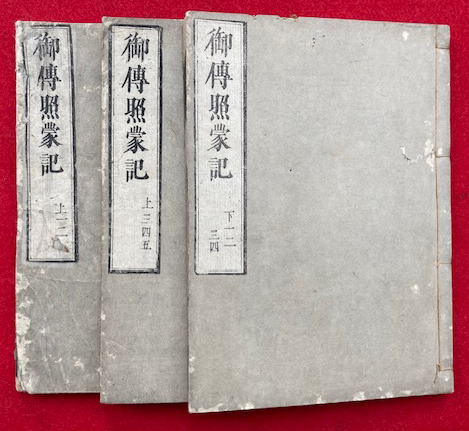 御傳照蒙記
下一二
三四
御傳照蒙記
上三四五
御傳照蒙記
上一二